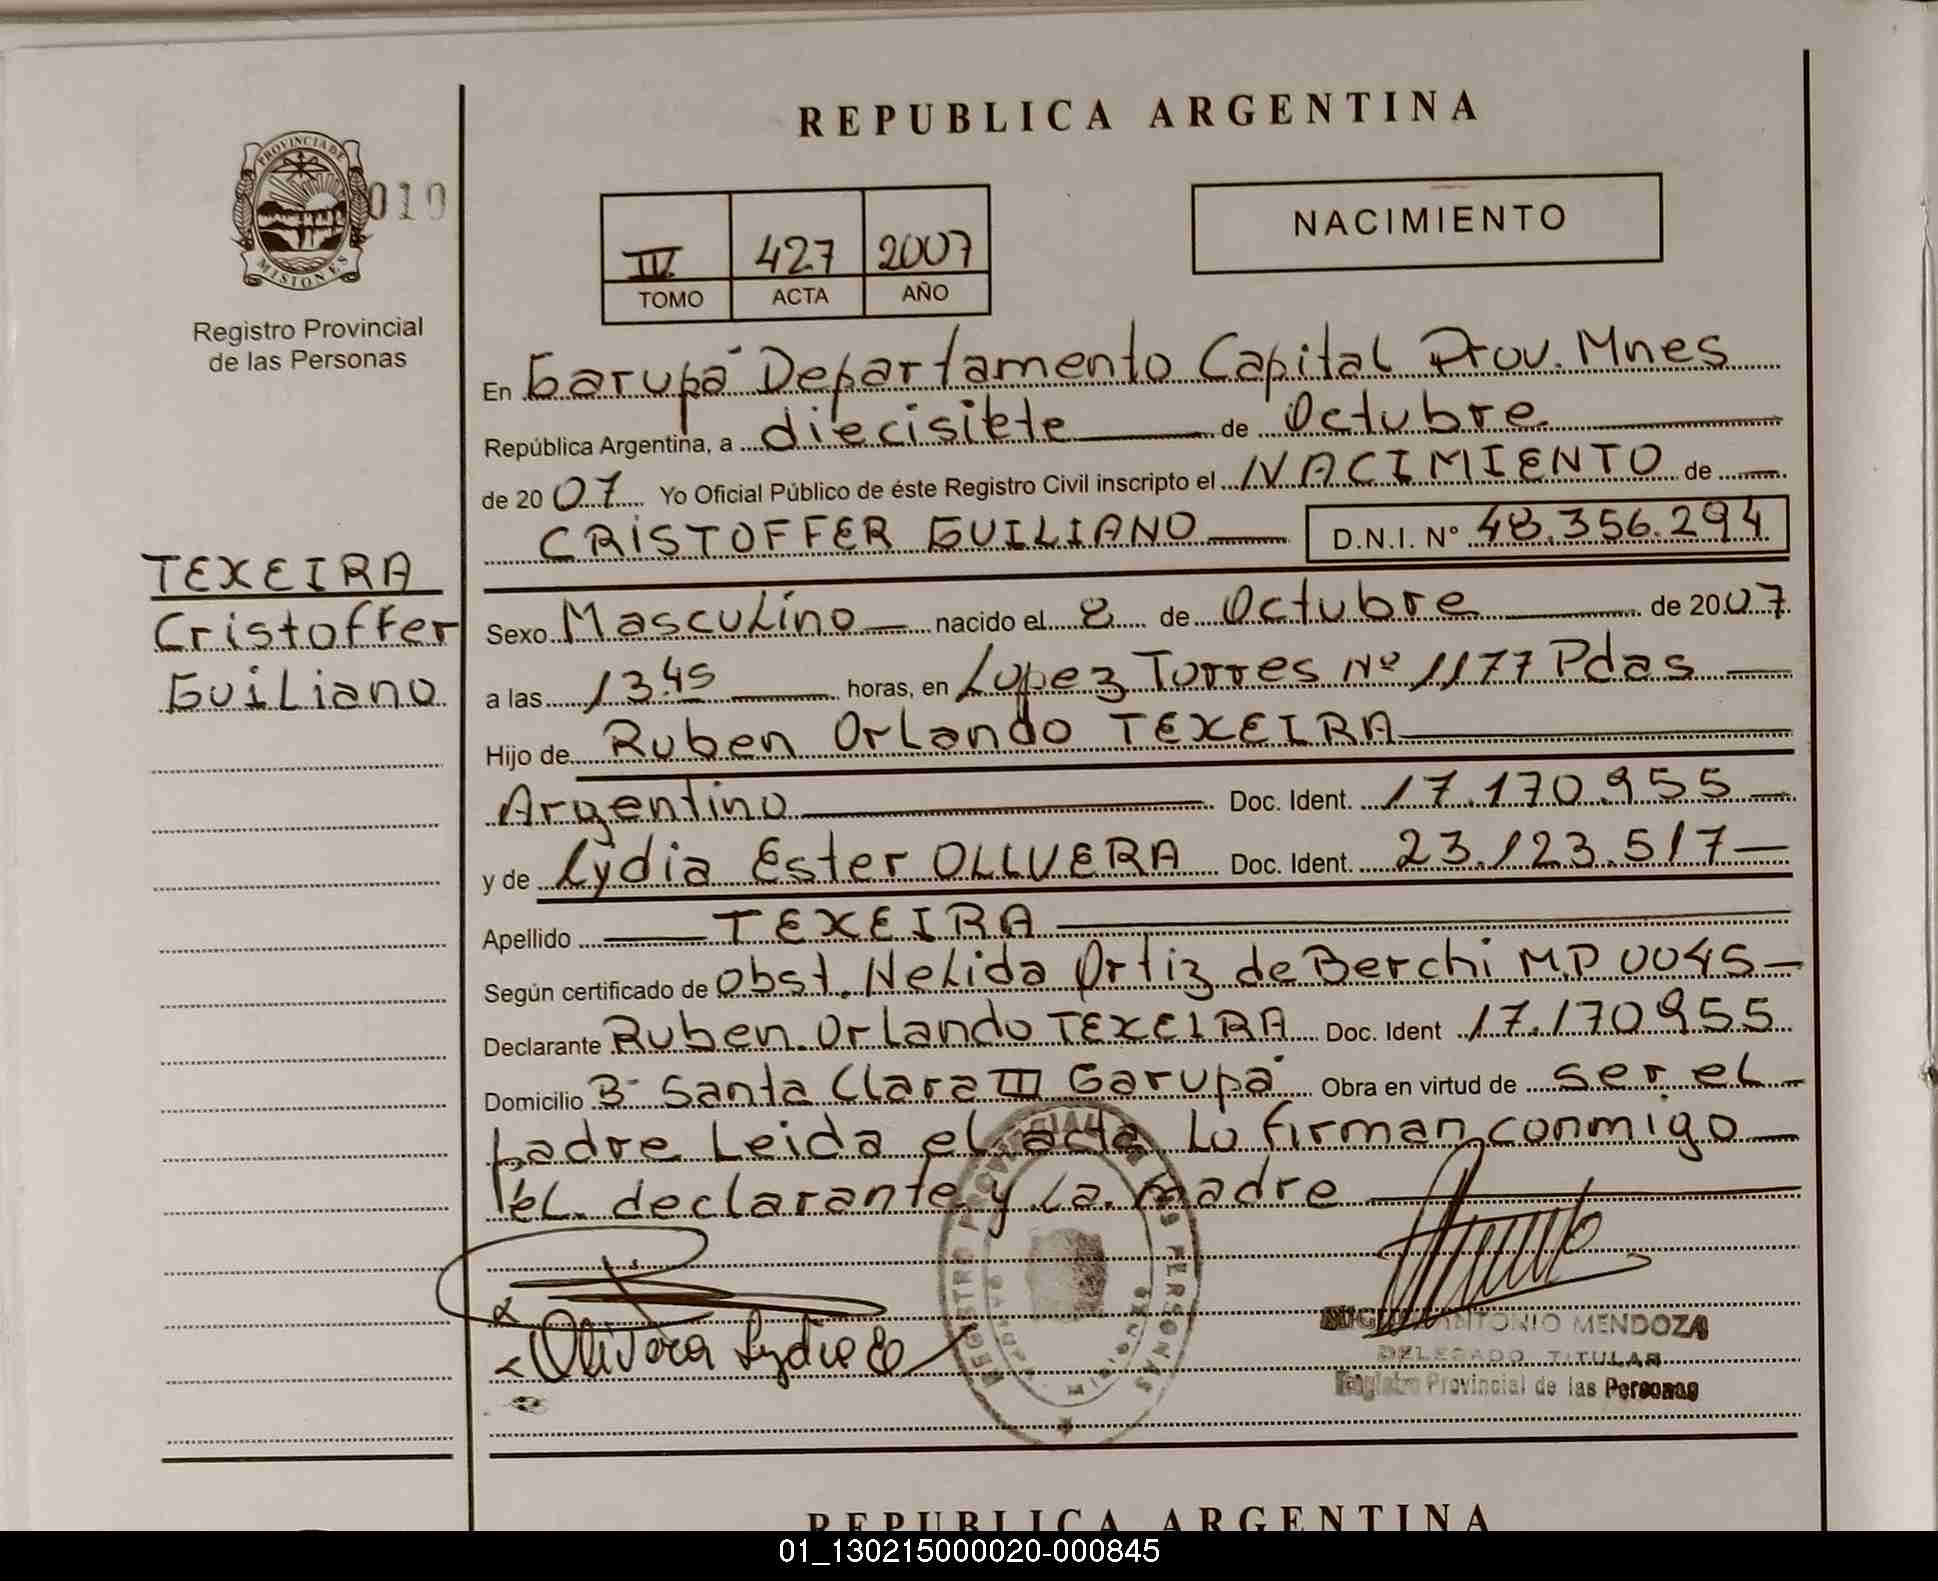 REPUBLICA ARGENTINA
PROVINCIA DE MISIONES
010
NACIMIENTO
IV 427 2007
TOMO ACTA AÑO
Registro Provincial
de las Personas
En Garupá Departamento Capital Prov. Mnes
República Argentina, a diecisiete de Octubre
de 2007 Yo Oficial Público de éste Registro Civil inscripto el NACIMIENTO de
CRISTOFFER GUILIANO D.N.I. N° 48.356.294
TEXEIRA
Cristoffer
Guiliano
Sexo Masculino nacido el 8 de Octubre de 2007
a las 13.45 horas, en Lopez Torres Nº 1177 Pdas
Hijo de Ruben Orlando TEXEIRA
Argentino Doc. Ident. 17.170.955
y de Lydia Ester OLIVERA Doc. Ident. 23.123.517
Apellido TEXEIRA
Según certificado de Obst. Nelida Ortiz de Berchi M.P 0045
Declarante Ruben Orlando TEXEIRA Doc. Ident 17.170955
Domicilio Bº Santa Clara III Garupá Obra en virtud de ser el
padre Leida el acta Lo firman conmigo
el declarante y La madre
Olivera Lydia E
REGISTRO PROVINCIAL DE LAS PERSONAS
ANTONIO MENDOZA
DELEGADO TITULAR
Registro Provincial de las Personas
REPUBLICA ARGENTINA
01_130215000020-000845